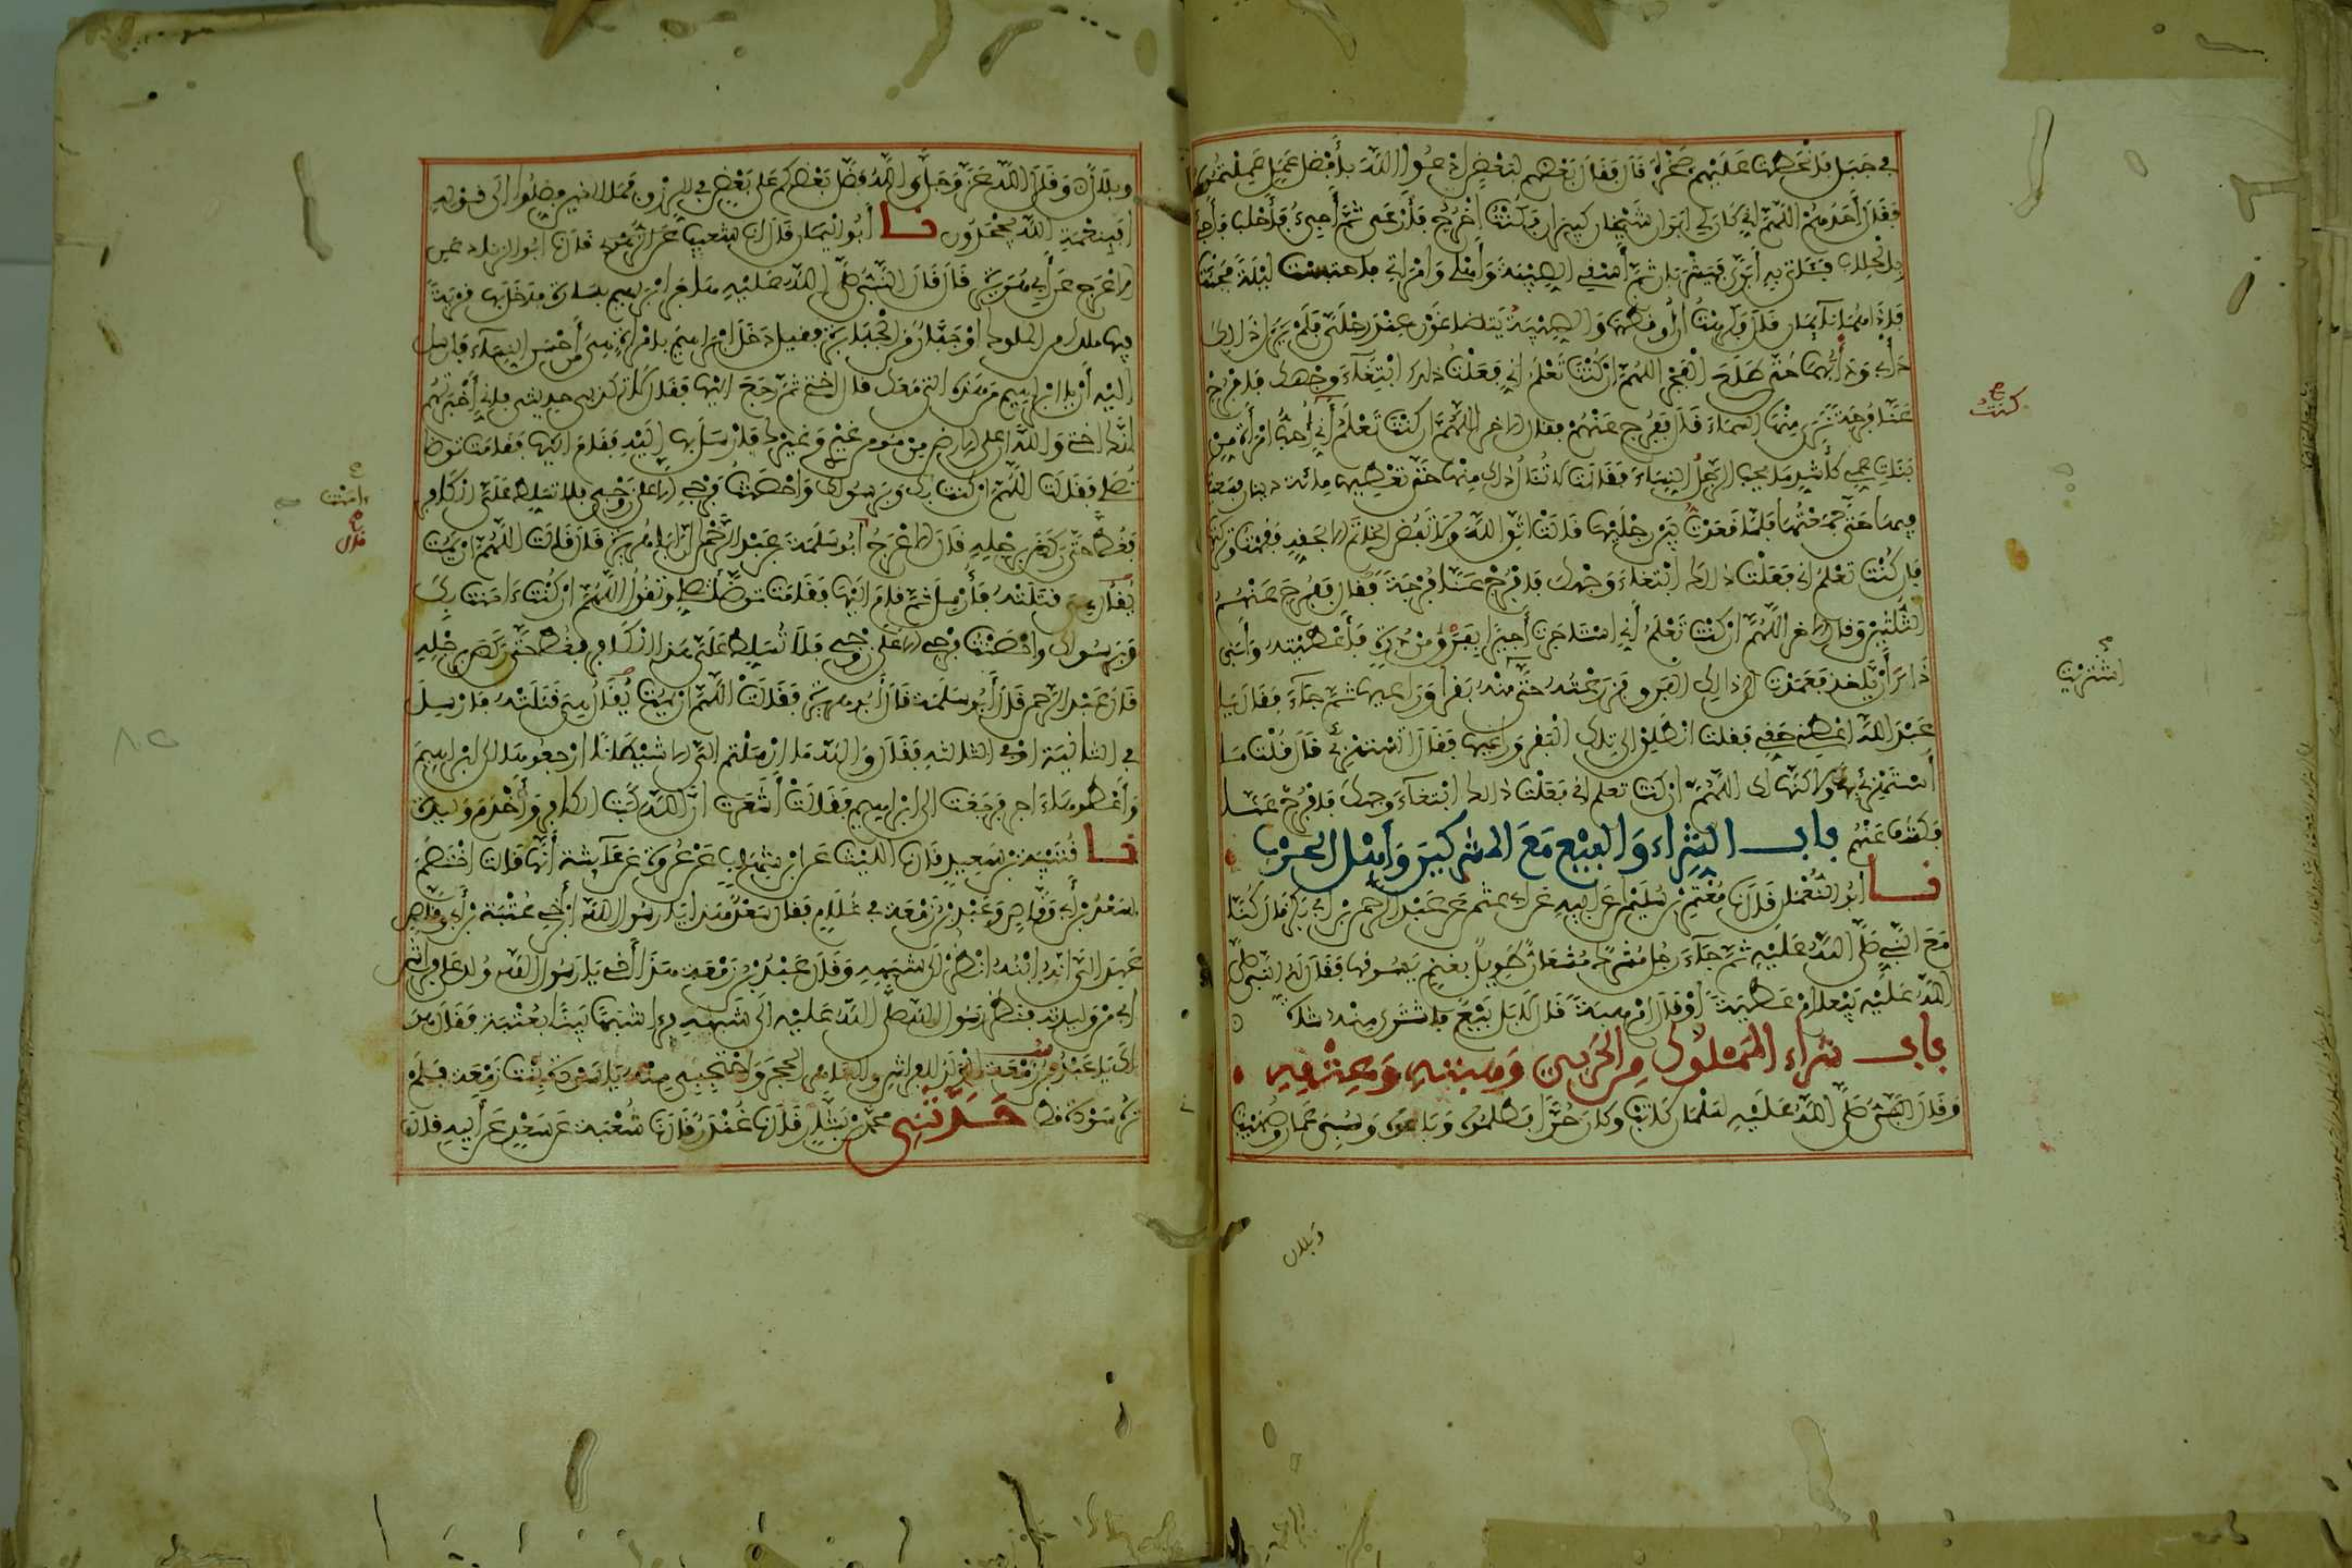 في جبل فانحطت عليهم صخرة قال فقال بعضهم لبعض ادعوا الله بأفضل عمل عملتموه
فقال أحدهم اللهم إني كان لي ابوان شيخان كبيران فكنت اخرج فأرعى ثم أجيء فأحلب فأجيء
بالحلاب فآتي به أبوي فيشربان ثم أسقي الصبية وأهلي وامرأتي فاحتبست ليلة فجئت
فإذا هما نائمان قال فكرهت أن أوقظهما والصبية يتضاغون عند رجلي فلم يزل ذلك
دأبي ودأبهما حتى طلع الفجر اللهم ان كنت تعلم أني فعلت ذلك ابتغاء وجهك فافرج
عنا فرجة نرى منها السماء قال ففرج عنهم وقال الاخر اللهم ان كنت تعلم أني أحب امرأة من
كنت
بنات عمي كأشد ما يحب الرجل النساء فقالت لا تنال ذلك منها حتى تعطيها مائة دينار فسعيت
فيها حتى جمعتها فلما قعدت بين رجليها قالت اتق الله ولا تفض الخاتم الا بحقه فقمت وتركتها
فان كنت تعلم اني فعلت ذلك ابتغاء وجهك فافرج عنا فرجة قال ففرج عنهم
الثلثين وقال الاخر اللهم ان كنت تعلم أني استاجرت أجيرا بفرق من ذرة فأعطيته وأبى
اشتريت
ذاك أن ياخذ فعمدت الى ذلك الفرق فزرعته حتى منه بقرا وراعيها ثم جاء فقال يا
عبد الله اعطني حقي فقلت انطلق إلى تلك البقر وراعيها فقال أتستهزئ قال قلت ما
أستهزئ بك ولاكنها لك اللهم ان كنت تعلم اني فعلت ذلك ابتغاء وجهك فافرج عنا
فكشف عنهم باب الشراء والبيع مع المشركين وأهل الحرب
نا أبو النعمن قال نا معتمر بن سليمن عن أبيه عن أبي عثمن عن عبد الرحمن بن أبي بكر قال كنا
مع النبي صلى الله عليه ثم جاء رجل مشرك مشعان طويل بغنم يسوقها فقال له النبي صلى
الله عليه بيعا ام عطية أو قال ام هبة قال لا بل بيع فاشترى منه شاة
باب شراء المملوك من الحربي وهبته وعتقه
وقال النبي صلى الله عليه لسلمان كاتب وكان حرا فظلموه وباعوه وسبي عمار وصهيب
وبلال
وبلال وقال الله عز وجل والله فضل بعضكم على بعض في الرزق فما الذين فضلوا إلى قوله
افبنعمة الله يجحدون نا أبو اليمان قال انا شعيب عن الزهري قال نا أبو الزناد عن
الاعرج عن أبي هريرة قال قال النبي صلى الله عليه هاجر ابرهيم بسارة فدخل بها قرية
فيها ملك من الملوك أو جبار من الجبابرة فقيل دخل ابراهيم بامرأة هي من أحسن النساء فارسل
إليه أن يا ابراهيم من هذه التي معك قال اختي ثم رجع اليها فقال لا تكذبي حديثي فإني أخبرتهم
انك اختي والله ان على الارض من مومن غيري وغيرك فارسل بها إليه فقام اليها فقامت توضأ
تصلي فقالت اللهم ان كنت بك وبرسولك واحصنت فرجي الا على زوجي فلا تسلط علي الكافر
امنت
فغط حتى ركض برجله قال الاعرج أبو سلمة بن عبد الرحمن ان أبا هريرة قال قالت اللهم ان يمت
قال
يقال هي قتلته فأرسل ثم قام اليها فقامت توضأ تصلي وتقول اللهم ان كنت ءامنت بك
وبرسولك واحصنت فرجي الا على زوجي فلا تسلط علي هذا الكافر فغط حتى ركض برجله
قال عبد الرحمن قال أبو سلمة قال أبو هريرة فقالت اللهم ان يمت يقال هي قتلته فارسل
في الثانية أو في الثالثة فقال والله ما ارسلتم إلي الا شيطانا ارجعوها إلى ابراهيم
وأعطوها ءاجر فرجعت الى ابراهيم فقالت أشعرت ان الله كبت الكافر وأخدم وليدة
نا قتيبة بن سعيد قال نا الليث عن ابن شهاب عن عروة عن عائشة أنها قالت اختصم
سعد بن أبي وقاص وعبد بن زمعة في غلام فقال سعد هذا يا رسول الله ابن أخي عتبة بن أبي وقاص
عهد إلي أنه ابنه انظر إلى شبهه وقال عبد بن زمعة هذا أخي يا رسول الله ولد على فراش
أبي من وليدته فنظر رسول الله صلى الله عليه الى شبهه فرءا شبها بينا بعتبة فقال هو
لك يا عبد بن زمعة الولد للفراش وللعاهر الحجر واحتجبي منه يا سودة بنت زمعة فلم
تره سودة قط حدثني محمد بن بشار قال نا غندر قال نا شعبة عن سعد عن أبيه قال